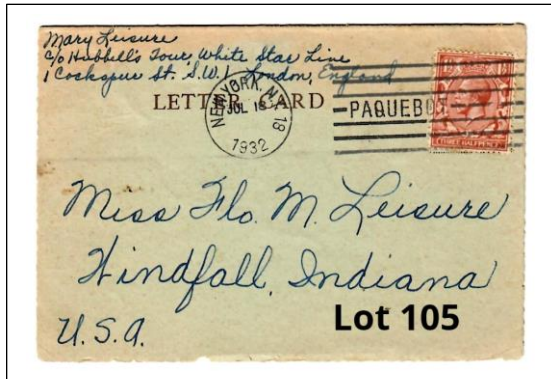 Mary Leisure
c/o Hubbell's Tour, White Star Line
1 Cockspur St. S.W.1 London, England
LETTER CARD
NEW YORK, N.Y.
JUL 18
18
1932
PAQUEBOT
THREE HALFPENCE
Miss Flo. M. Leisure
Windfall, Indiana
U.S.A.
Lot 105